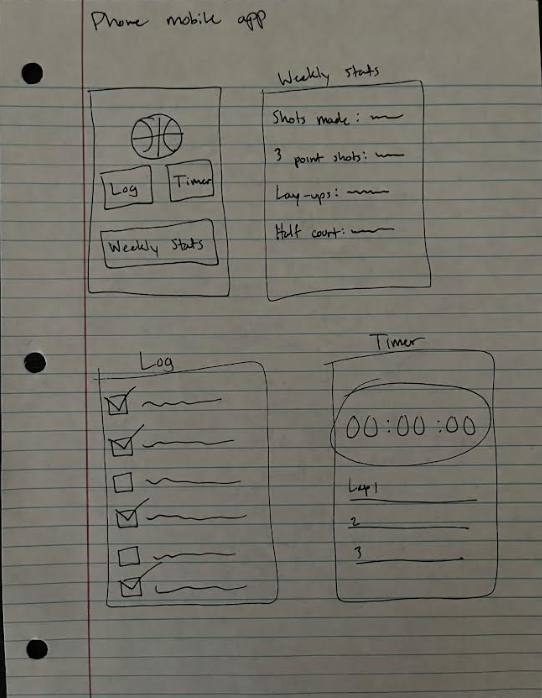 Phone mobile app
Log
Timer
Weekly Stats
Weekly stats
Shots made:
3 point shots:
Lay-ups:
Half court:
Log
Timer
00:00:00
Lap 1
2
3